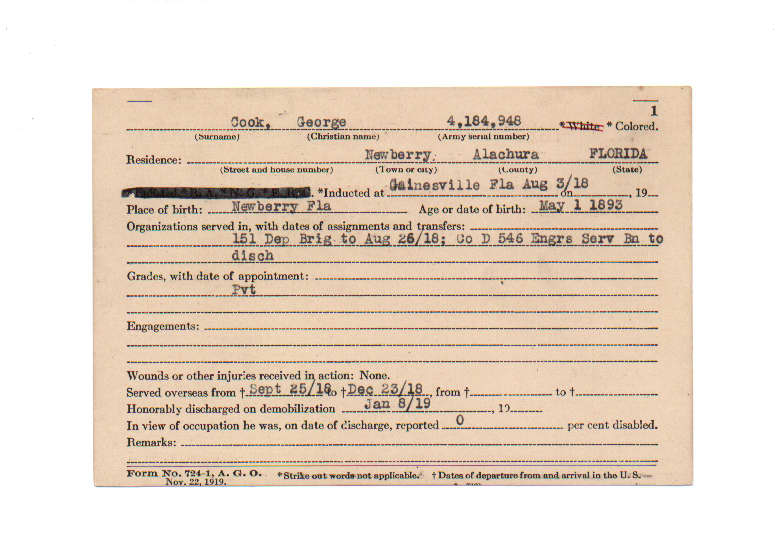 1
Cook, George 4,184,948 *White * Colored.
(Surname) (Christian name) (Army serial number)
Residence: Newberry. Alachura FLORIDA
(Street and house number) (Town or city) (County) (State)
*Inducted at Gainesville Fla Aug 3/18 on , 19
Place of birth: Newberry Fla Age or date of birth: May 1 1893
Organizations served in, with dates of assignments and transfers:
151 Dep Brig to Aug 26/18; Co D 546 Engrs Serv Bn to
disch
Grades, with date of appointment:
Pvt
Engagements:
Wounds or other injuries received in action: None.
Served overseas from † Sept 25/18 to † Dec 23/18, from † to †
Honorably discharged on demobilization Jan 8/19, 19
In view of occupation he was, on date of discharge, reported 0 per cent disabled.
Remarks:
Form No. 724-1, A. G. O. *Strike out words not applicable. † Dates of departure from and arrival in the U. S.
Nov. 22, 1919.